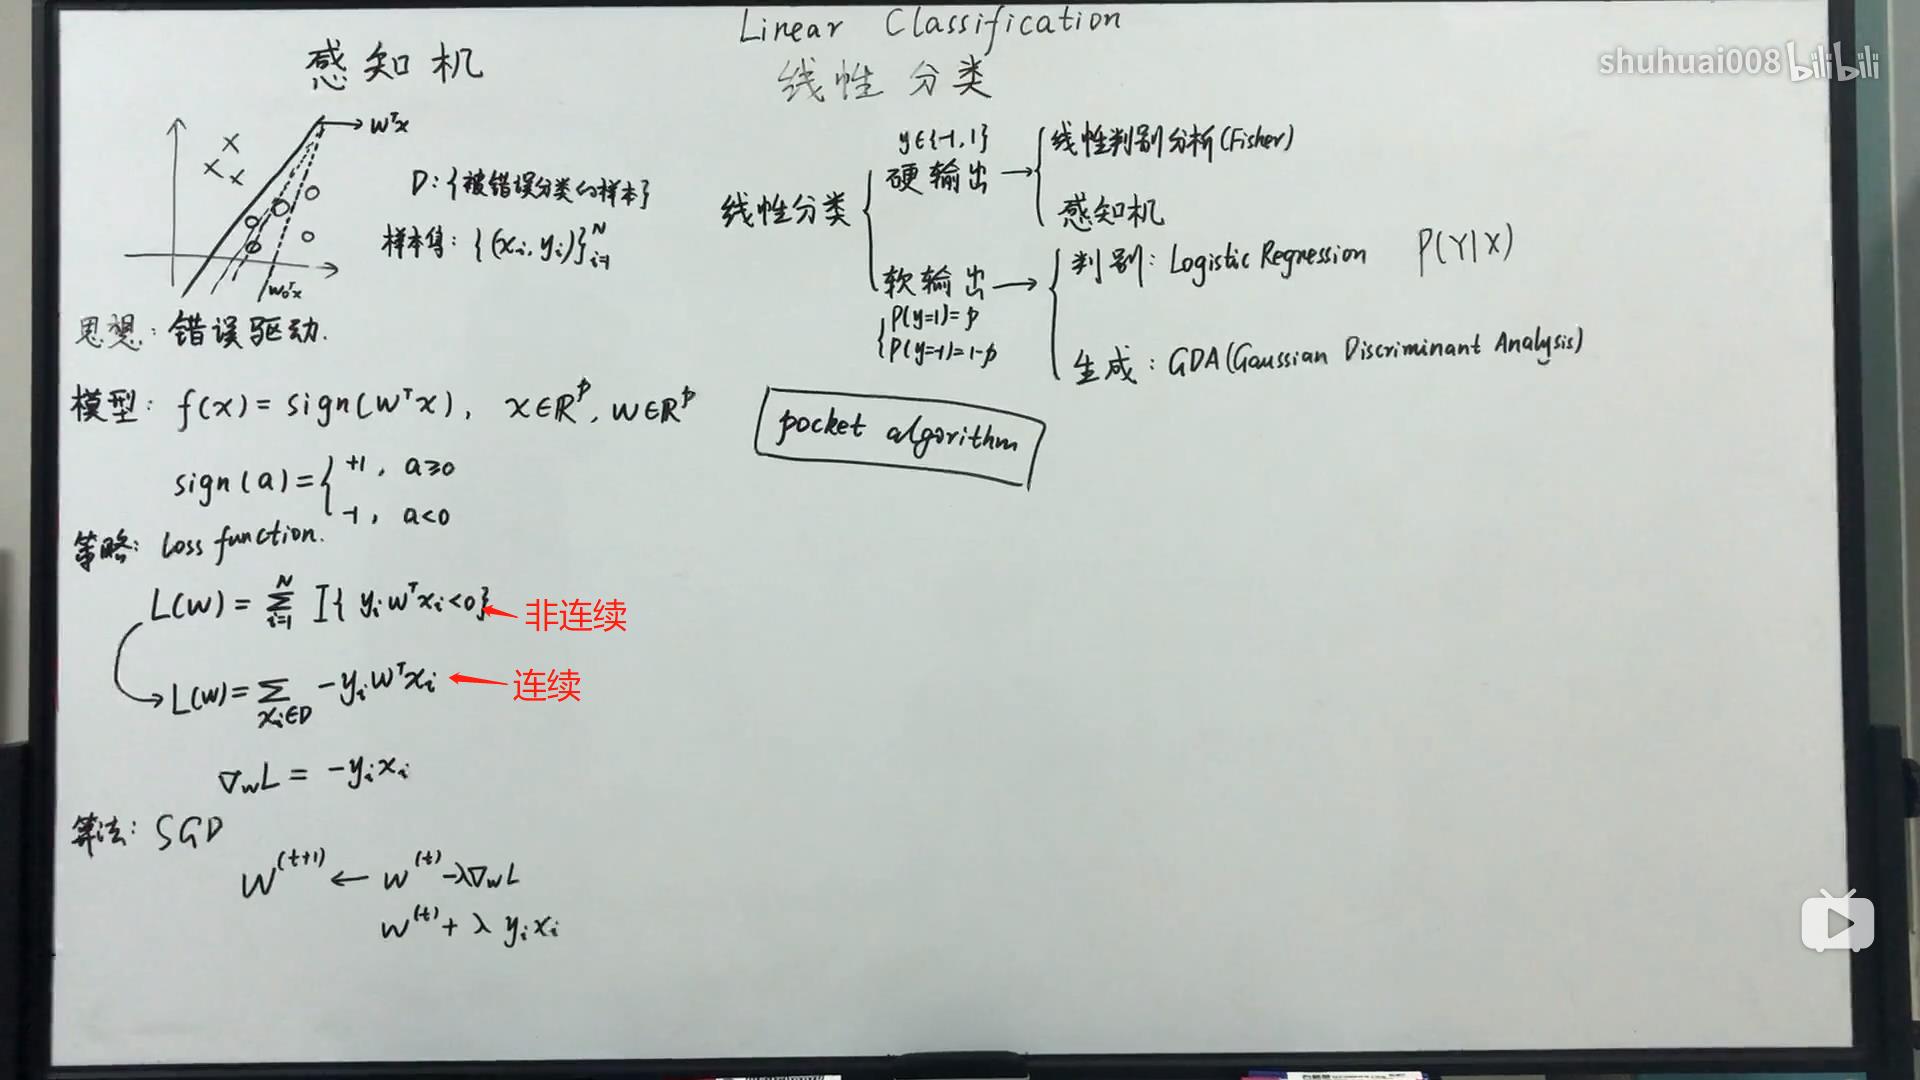 Linear Classification
线性分类
shuhuai008 bilibili
感知机
wᵀx
D:{被错误分类的样本}
样本集: {(xᵢ, yᵢ)}ᵢ₌₁ᴺ
w₀ᵀx
思想: 错误驱动.
模型: f(x) = sign(wᵀx), x∈ℝᵖ, w∈ℝᵖ
sign(a) = { +1, a≥0
-1, a<0
策略: Loss function.
L(w) = Σᵢ₌₁ᴺ I{ yᵢwᵀxᵢ<0}
非连续
L(w) = Σ_{xᵢ∈D} -yᵢwᵀxᵢ
连续
∇wL = -yᵢxᵢ
算法: SGD
w⁽ᵗ⁺¹⁾ ← w⁽ᵗ⁾ -λ∇wL
w⁽ᵗ⁾ + λ yᵢxᵢ
线性分类
y∈{-1, 1}
硬输出 →
线性判别分析(Fisher)
感知机
软输出 →
P(y=1)=p
P(y=-1)=1-p
判别: Logistic Regression P(Y|X)
生成: GDA(Gaussian Discriminant Analysis)
pocket algorithm